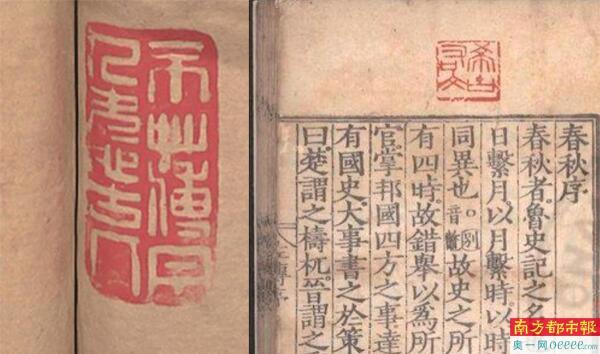 不薄今
人愛古人
希古
右文
春秋序
春秋者魯史記之名
日繫月以月繫時以時
同異也故史之所
有四時故錯舉以為所
官掌邦國四方之事達
有國史大事書之於策
曰楚謂之檮杌晉謂之
南方都市報
奥一网oeeee.com